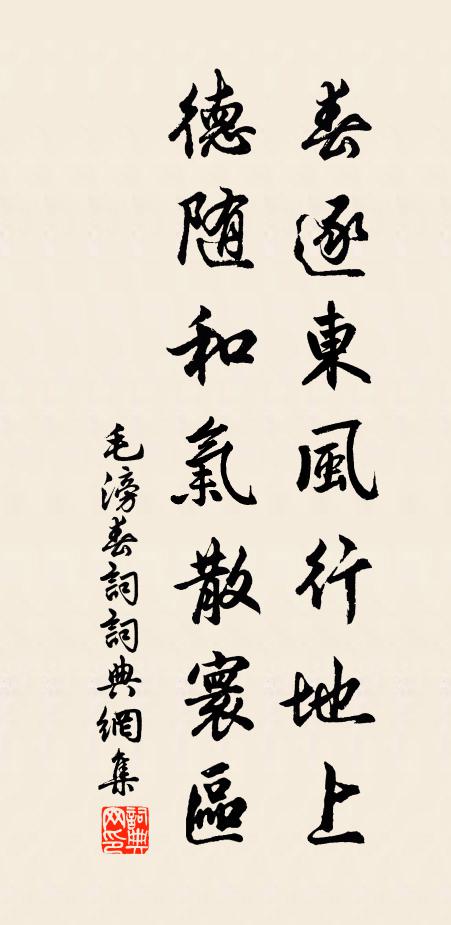 春逐東風行地上
德随和氣散寰區
毛滂春詞詞典網集
詞典網印